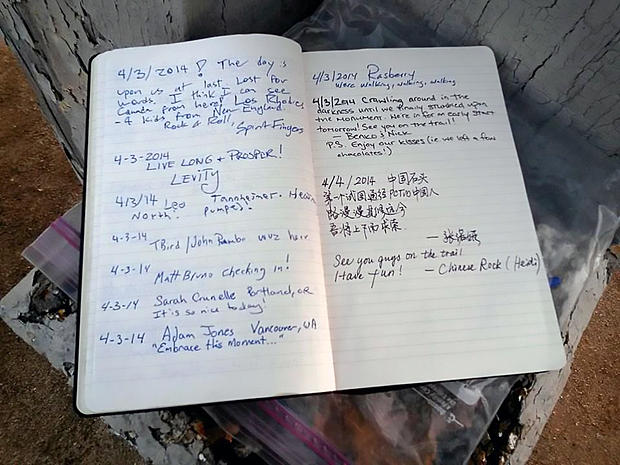 4/3/2014! The day is
upon us at last. Lost for
words. I think I can see
Canada from here! Los Rhodes
- 4 kids from New England
Rock & Roll, Spirit Fingers
4-3-2014
LIVE LONG & PROSPER!
LEVITY
4/3/14 Leo Tannheimer.
North!
4-3-14 TBird / John Rambo wuz here
4-3-14 Matt Bruno checking in!
4-3-14 Sarah Portland, OR
It's so nice today!
4-3-14 Adam Jones Vancouver, WA
"Embrace this moment..."
4/3/2014 Rasberry
Were walking, walking, walking
4/3/2014 Crawling around in the
darkness until we finally stumbled upon
the Monument. Here in for an early start
tomorrow! See you on the trail!
- & Nick
P.S. Enjoy our kisses (i.e we left a few
chocolates!)
4/4/2014 中国石头
第一个试图通径PCT的中国人
路漫漫其修远兮
吾将上下而求索
See you guys on the trail
Have fun! - Chinese Rock (Heidi)